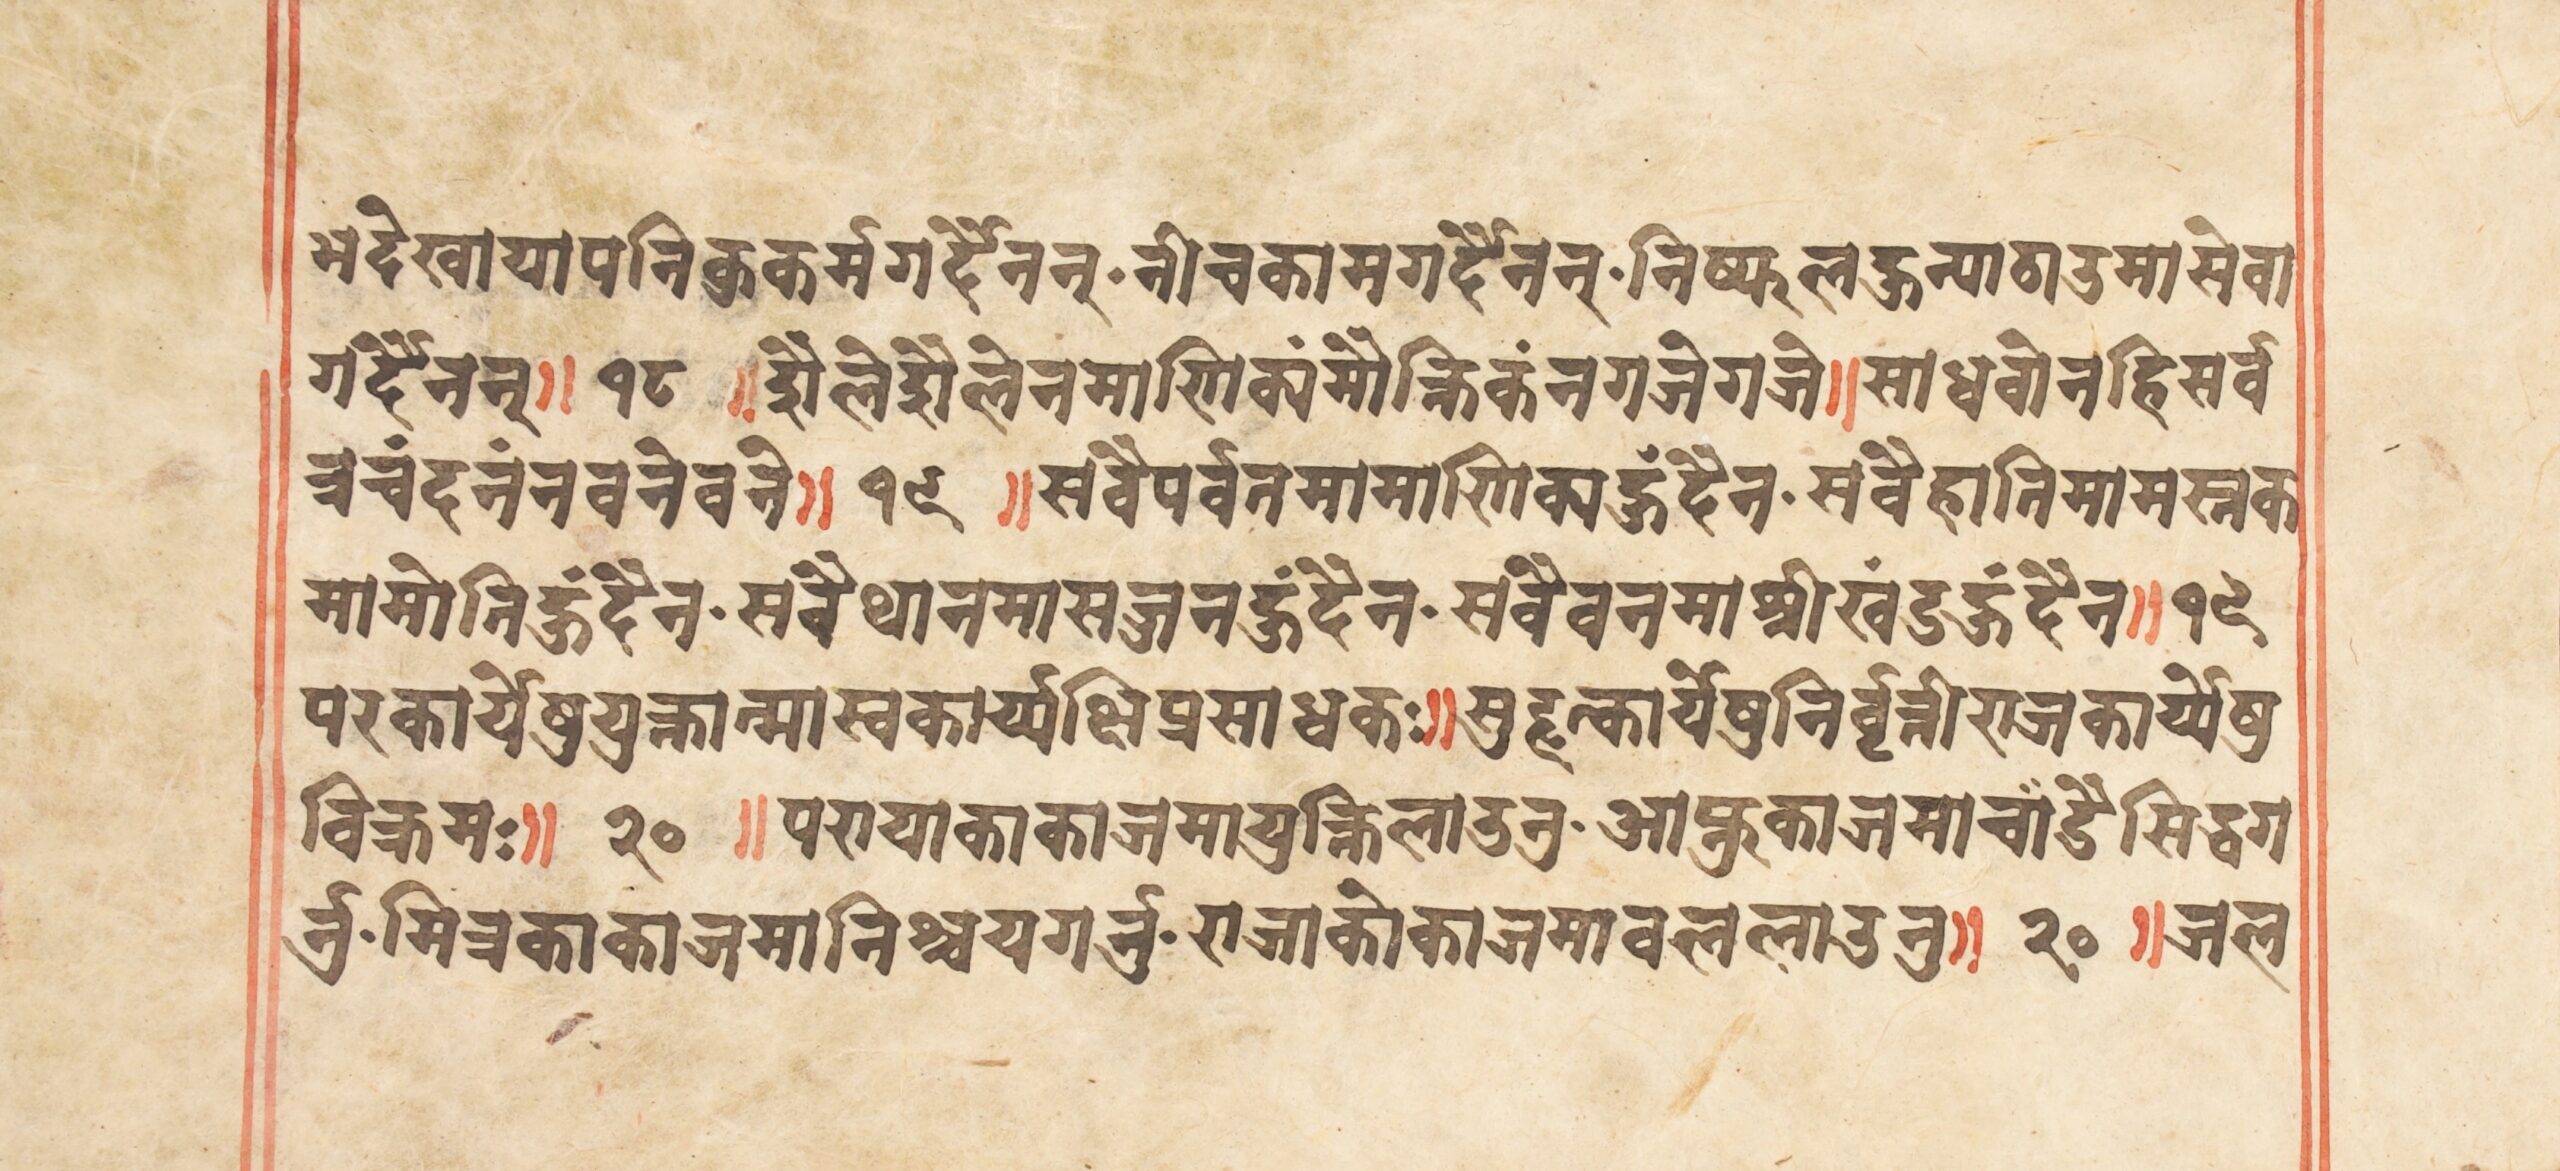 भदेखायापनिकुकर्मगर्दैनन्·नीचकामगर्दैनन्·निष्फलहुन्याठाउमासेवा
गर्दैनन्॥ १८ ॥शैलेशैलेनमाणिक्यंमौक्तिकंनगजेगजे॥साधवोनहिसर्व
त्रचंदनंनवनेवने॥ १९ ॥सवैपर्वतमामाणिक्यहुंदैन·सवैहातिमामस्तक
मामोतिहुंदैन·सवैथानमासज्जनहुंदैन·सवैवनमाश्रीखंडहुंदैन॥१९
परकार्येषुयुक्तात्मास्वकार्य्यक्षिप्रसाधकः॥सुहृत्कार्येषुनिर्वृत्तीराजकार्य्येषु
विक्रमः॥ २० ॥परायाकाकाजमायुक्तिलाउनु·आफ्नुकाजमाचांडैसिद्धग
र्नु·मित्रकाकाजमानिश्चयगर्नु·राजाकोकाजमावललाउनु॥ २० ॥जल